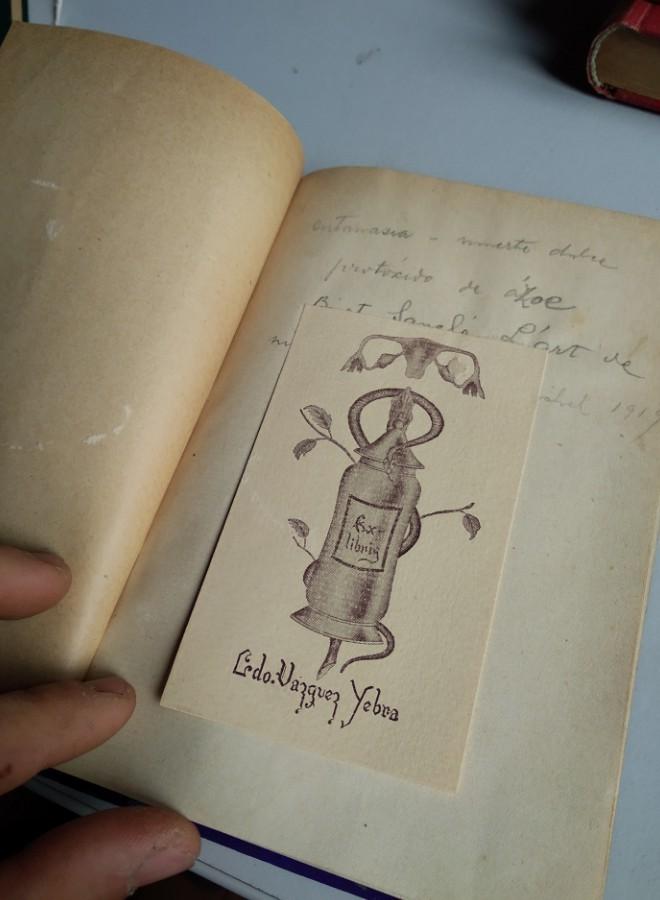 eutanasia - muerte dulce
protóxido de ázoe
Binet Sanglé L'art de
1919
Ex-
libris
Lcdo. Vázquez Yebra